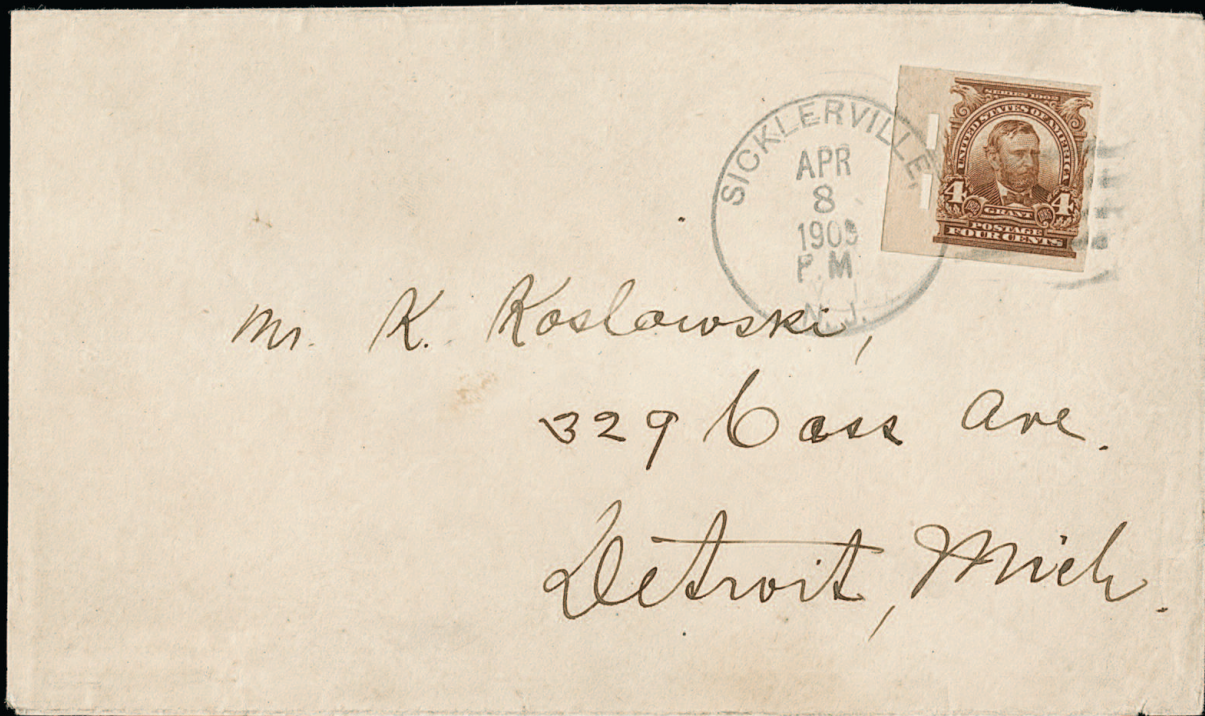 SICKLERVILLE,
APR
8
P.M
N.J.
SERIES 1902
UNITED STATES OF AMERICA
4 4
GRANT
POSTAGE
FOUR CENTS
Mr. K. Koslowski,
329 Cass Ave.
Detroit, Mich.